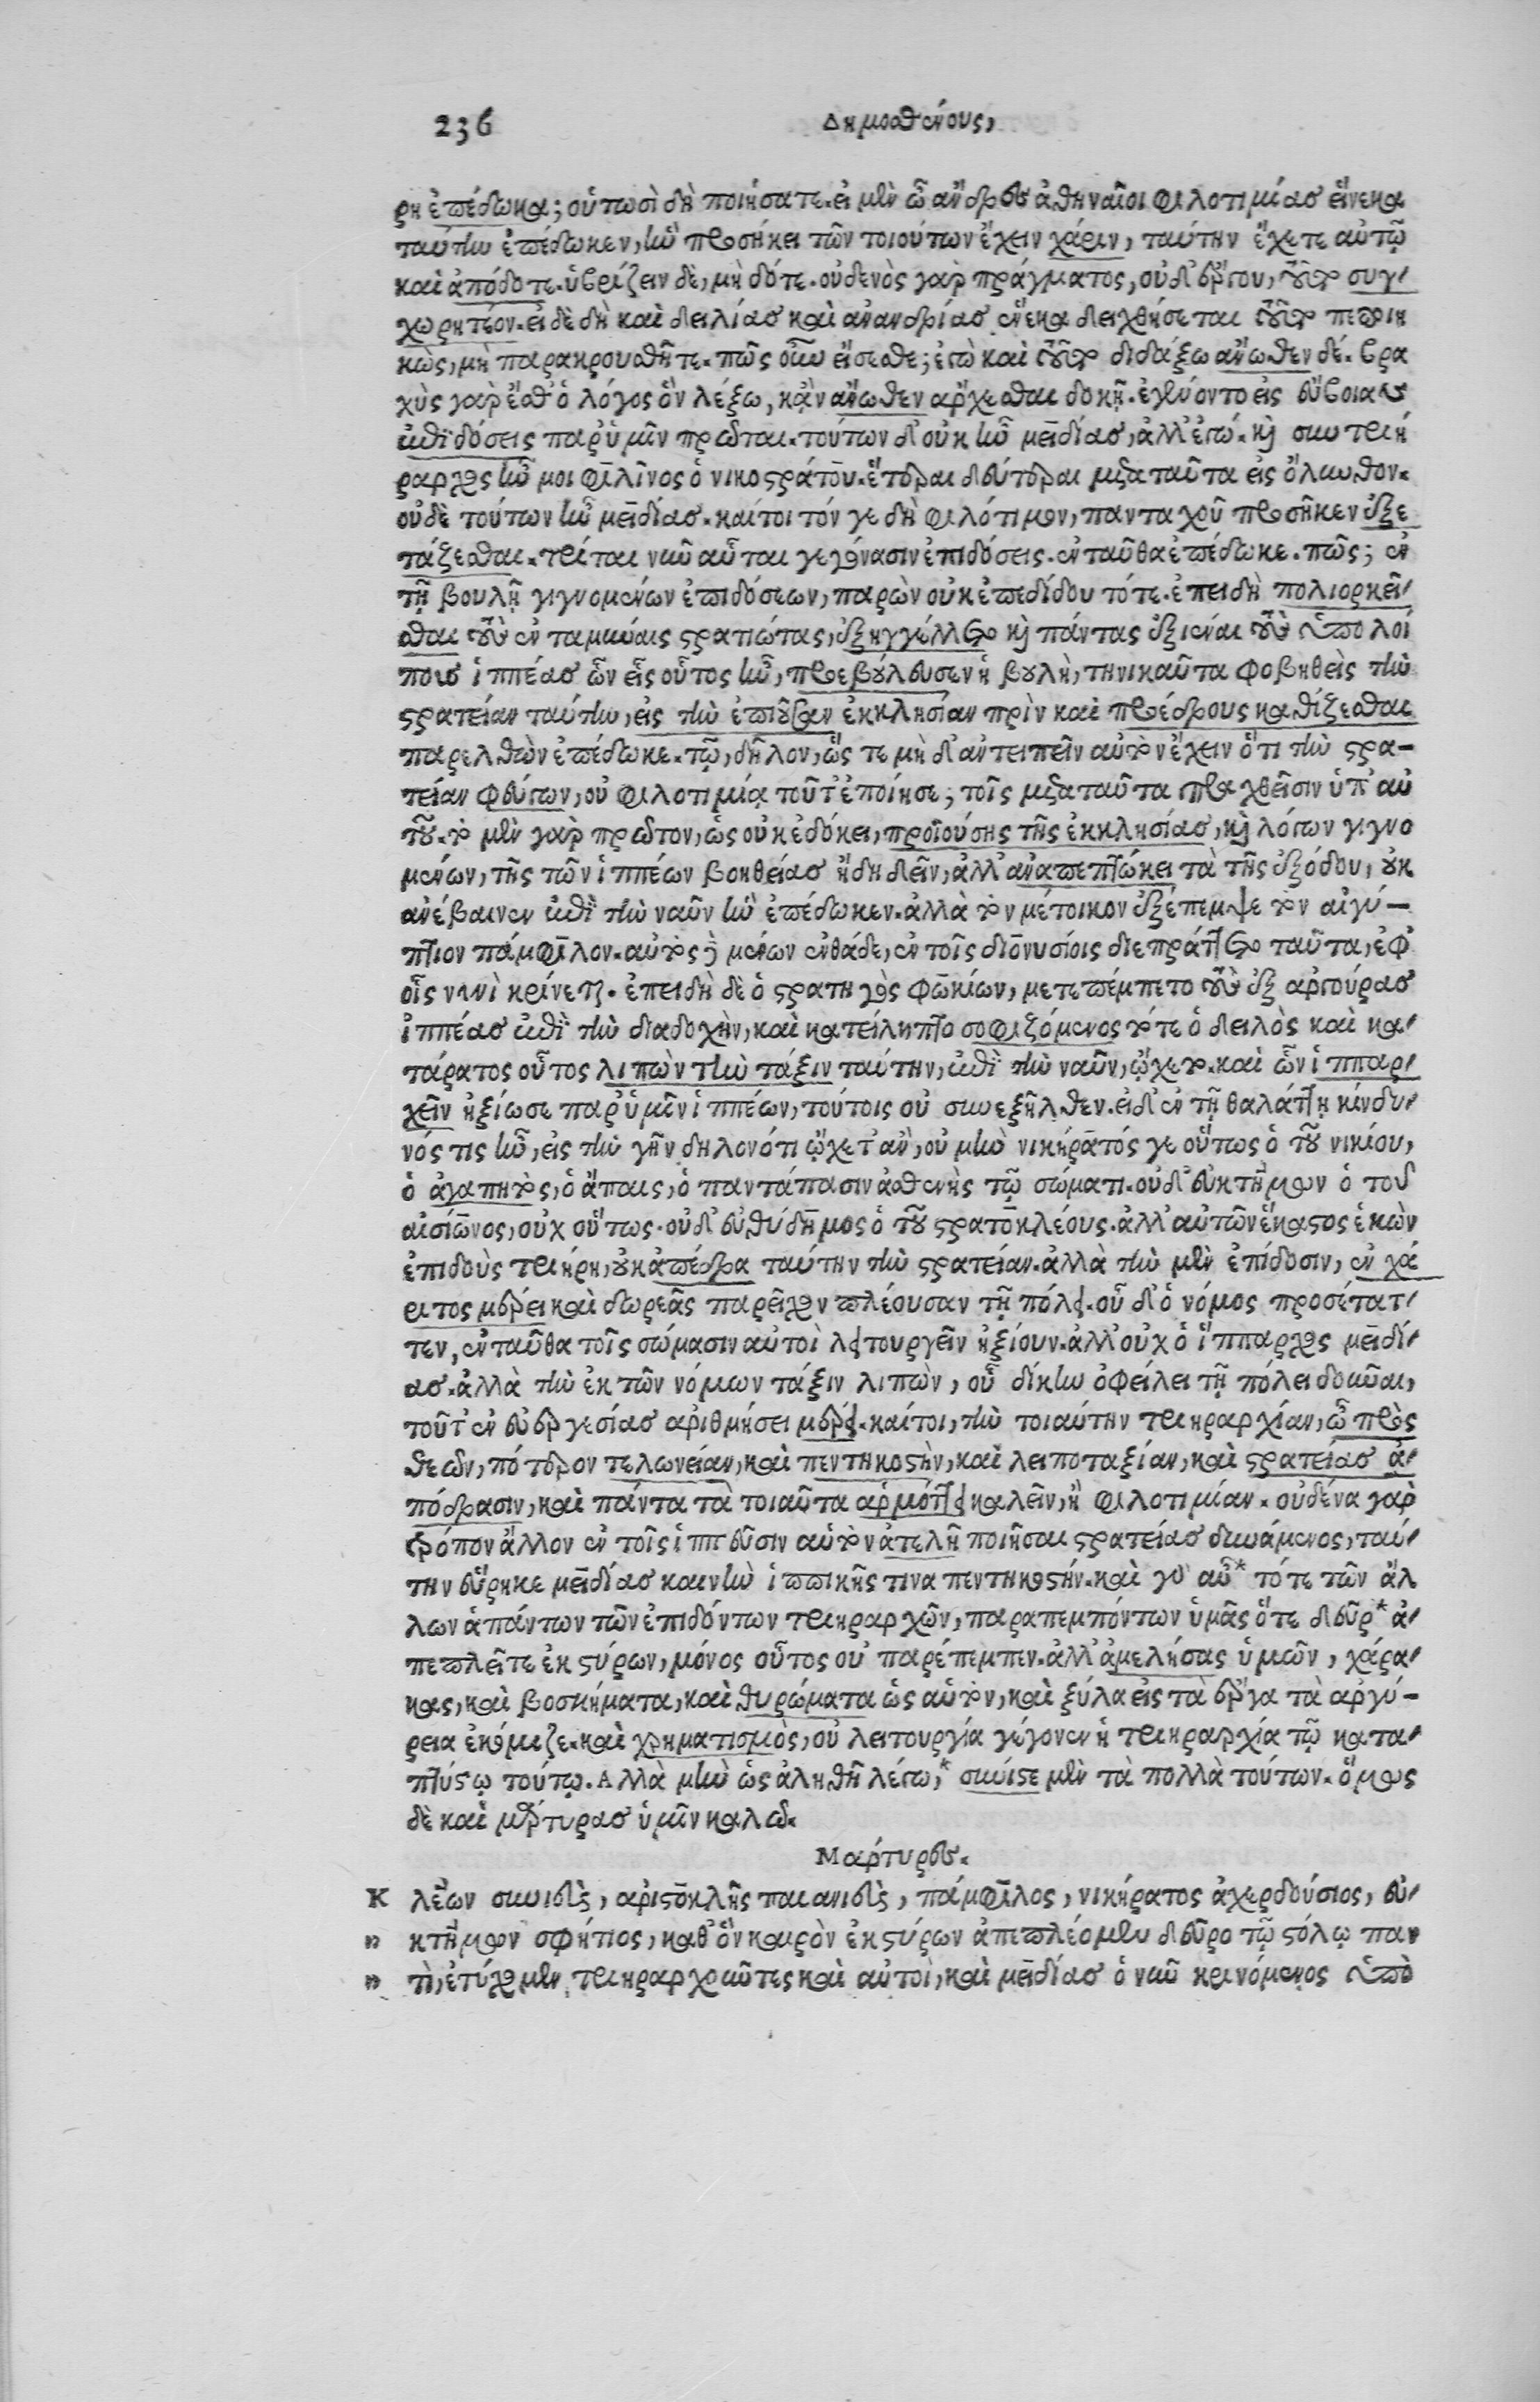 236 Δημοσθένους,
ρη ἐπέδωκα; οὑτωσὶ δὴ ποιήσατε. εἰ μὲν ὦ ἄνδρες ἀθηναῖοι φιλοτιμίας εἵνεκα
ταύτην ἐπέδωκεν, ἣν προσήκει τῶν τοιούτων ἔχειν χάριν, ταύτην ἔχετε αὐτῷ
καὶ ἀπόδοτε. ὑβρίζειν δὲ, μὴ δότε. οὐδενὸς γὰρ πράγματος, οὐδ' ἔργου, τοῦτο συγ-
χωρητέον. εἰ δὲ δὴ καὶ δειλίας καὶ ἀνανδρίας ἕνεκα δειχθήσεται τοῦτο πεποιη
κὼς, μὴ παρακρουσθῆτε. πῶς οὖν εἴσεσθε; ἐγὼ καὶ τοῦτο διδάξω ἄνωθεν δέ. βρα
χὺς γὰρ ἔσθ' ὁ λόγος ὃν λέξω, κἂν ἄνωθεν ἄρχεσθαι δοκῇ. ἐγένοντο εἰς εὔβοιαν
ἐπιδόσεις παρ' ὑμῖν πρῶται. τούτων δ' οὐκ ἦν μειδίας, ἀλλ' ἐγώ. καὶ συντριή
ραρχος ἦν μοι φιλῖνος ὁ νικοστράτου. ἕτεραι δεύτεραι μετὰ ταῦτα εἰς ὄλυνθον.
οὐδὲ τούτων ἦν μειδίας. καίτοι τόν γε δὴ φιλότιμον, πανταχοῦ προσῆκεν ἐξε
τάζεσθαι. τρίται νῦν αὗται γεγόνασιν ἐπιδόσεις. ἐνταῦθα ἐπέδωκε. πῶς; ἐν
τῇ βουλῇ γιγνομένων ἐπιδόσεων, παρὼν οὐκ ἐπεδίδου τότε. ἐπειδὴ πολιορκεῖ-
σθαι τοὺς ἐν ταμύναις στρατιώτας, ἐξηγγέλλετο καὶ πάντας ἐξιέναι τοὺς ὑπολοί
πους ἱππέας ὧν εἷς οὗτος ἦν, προεβούλευσεν ἡ βουλὴ, τηνικαῦτα φοβηθεὶς τὴν
στρατείαν ταύτην, εἰς τὴν ἐπιοῦσαν ἐκκλησίαν πρὶν καὶ προέδρους καθίζεσθαι
παρελθὼν ἐπέδωκε. τῷ, δῆλον, ὥς τε μὴ δ' ἀντειπεῖν αὐτὸν ἔχειν ὅτι τὴν στρα-
τείαν φεύγων, οὐ φιλοτιμίᾳ τοῦτ' ἐποίησε; τοῖς μετὰ ταῦτα πραχθεῖσιν ὑπ' αὐ
τοῦ. τὸ μὲν γὰρ πρῶτον, ὡς οὐκ ἐδόκει, προϊούσης τῆς ἐκκλησίας, καὶ λόγων γιγνο
μένων, τῆς τῶν ἱππέων βοηθείας ἤδη δεῖν, ἀλλ' ἀναπεπτώκει τὰ τῆς ἐξόδου, οὐκ
ἀνέβαινεν ἐπὶ τὴν ναῦν ἣν ἐπέδωκεν. ἀλλὰ τὸν μέτοικον ἐξέπεμψε τὸν αἰγύ-
πτιον πάμφιλον. αὐτὸς δὲ μένων ἐνθάδε, ἐν τοῖς διονυσίοις διεπράττετο ταῦτα, ἐφ'
οἷς νυνὶ κρίνεται. ἐπειδὴ δὲ ὁ στρατηγὸς φωκίων, μετεπέμπετο τοὺς ἐξ ἀργούρας
ἱππέας ἐπὶ τὴν διαδοχὴν, καὶ κατείληπτο σοφιζόμενος τότε ὁ δειλὸς καὶ κα-
τάρατος οὗτος λιπὼν τὴν τάξιν ταύτην, ἐπὶ τὴν ναῦν, ᾤχετο. καὶ ὧν ἱππαρ-
χεῖν ἠξίωσε παρ' ὑμῖν ἱππέων, τούτοις οὐ συνεξῆλθεν. εἰ δ' ἐν τῇ θαλάττῃ κίνδυ-
νός τις ἦν, εἰς τὴν γῆν δηλονότι ᾤχετ' ἂν, οὐ μὴν νικήρατός γε οὕτως ὁ τοῦ νικίου,
ὁ ἀγαπητὸς, ὁ ἄπαις, ὁ παντάπασιν ἀσθενὴς τῷ σώματι. οὐδ' εὐκτήμων ὁ τοῦ
αἰσίωνος, οὐχ οὕτως. οὐδ' εὐθύδημος ὁ τοῦ στρατοκλέους. ἀλλ' αὐτῶν ἕκαστος ἑκὼν
ἐπιδοὺς τριήρη, οὐκ ἀπέδρα ταύτην τὴν στρατείαν. ἀλλὰ τὴν μὲν ἐπίδοσιν, ἐν χά
ριτος μέρει καὶ δωρεᾶς παρεῖχον πλέουσαν τῇ πόλει. οὗ δ' ὁ νόμος προσέτατ-
τεν, ἐνταῦθα τοῖς σώμασιν αὐτοὶ λειτουργεῖν ἠξίουν. ἀλλ' οὐχ ὁ ἵππαρχος μειδί-
ας. ἀλλὰ τὴν ἐκ τῶν νόμων τάξιν λιπὼν, οὗ δίκην ὀφείλει τῇ πόλει δοῦναι,
τοῦτ' ἐν εὐεργεσίας ἀριθμήσει μέρει. καίτοι, τὴν τοιαύτην τριηραρχίαν, ὦ πρὸς
θεῶν, πότερον τελωνείαν, καὶ πεντηκοστὴν, καὶ λειποταξίαν, καὶ στρατείας ἀ-
πόδρασιν, καὶ πάντα τὰ τοιαῦτα ἁρμόττει καλεῖν, ἢ φιλοτιμίαν. οὐδένα γὰρ
τρόπον ἄλλον ἐν τοῖς ἱππεῦσιν αὑτὸν ἀτελῆ ποιῆσαι στρατείας δυνάμενος, ταύ-
την εὕρηκε μειδίας καινὴν ἱππικῆς τινα πεντηκοστήν. καὶ γὰρ αὖ* τότε τῶν ἄλ
λων ἁπάντων τῶν ἐπιδόντων τριηραρχῶν, παραπεμπόντων ὑμᾶς ὅτε δεῦρ* ἀ-
πεπλεῖτε ἐκ στύρων, μόνος οὗτος οὐ παρέπεμπεν. ἀλλ' ἀμελήσας ὑμῶν, χάρα-
κας, καὶ βοσκήματα, καὶ θυρώματα ὡς αὑτὸν, καὶ ξύλα εἰς τὰ ἔργα τὰ ἀργύ-
ρεια ἐκόμιζε. καὶ χρηματισμὸς, οὐ λειτουργία γέγονεν ἡ τριηραρχία τῷ κατα-
πτύστῳ τούτῳ. Αλλὰ μὴν ὡς ἀληθῆ λέγω,* σύνιστε μὲν τὰ πολλὰ τούτων. ὅμως
δὲ καὶ μάρτυρας ὑμῖν καλῶ.
Μάρτυρες.
Κ λέων σουνιεὺς, ἀριστοκλῆς παιανιεὺς, πάμφιλος, νικήρατος ἀχερδούσιος, εὐ-
" κτήμων σφήττιος, καθ' ὃν καιρὸν ἐκ στύρων ἀπεπλέομεν δεῦρο τῷ στόλῳ παν
" τὶ, ἐτύχομεν τριηραρχοῦντες καὶ αὐτοὶ, καὶ μειδίας ὁ νῦν κρινόμενος ὑπὸ